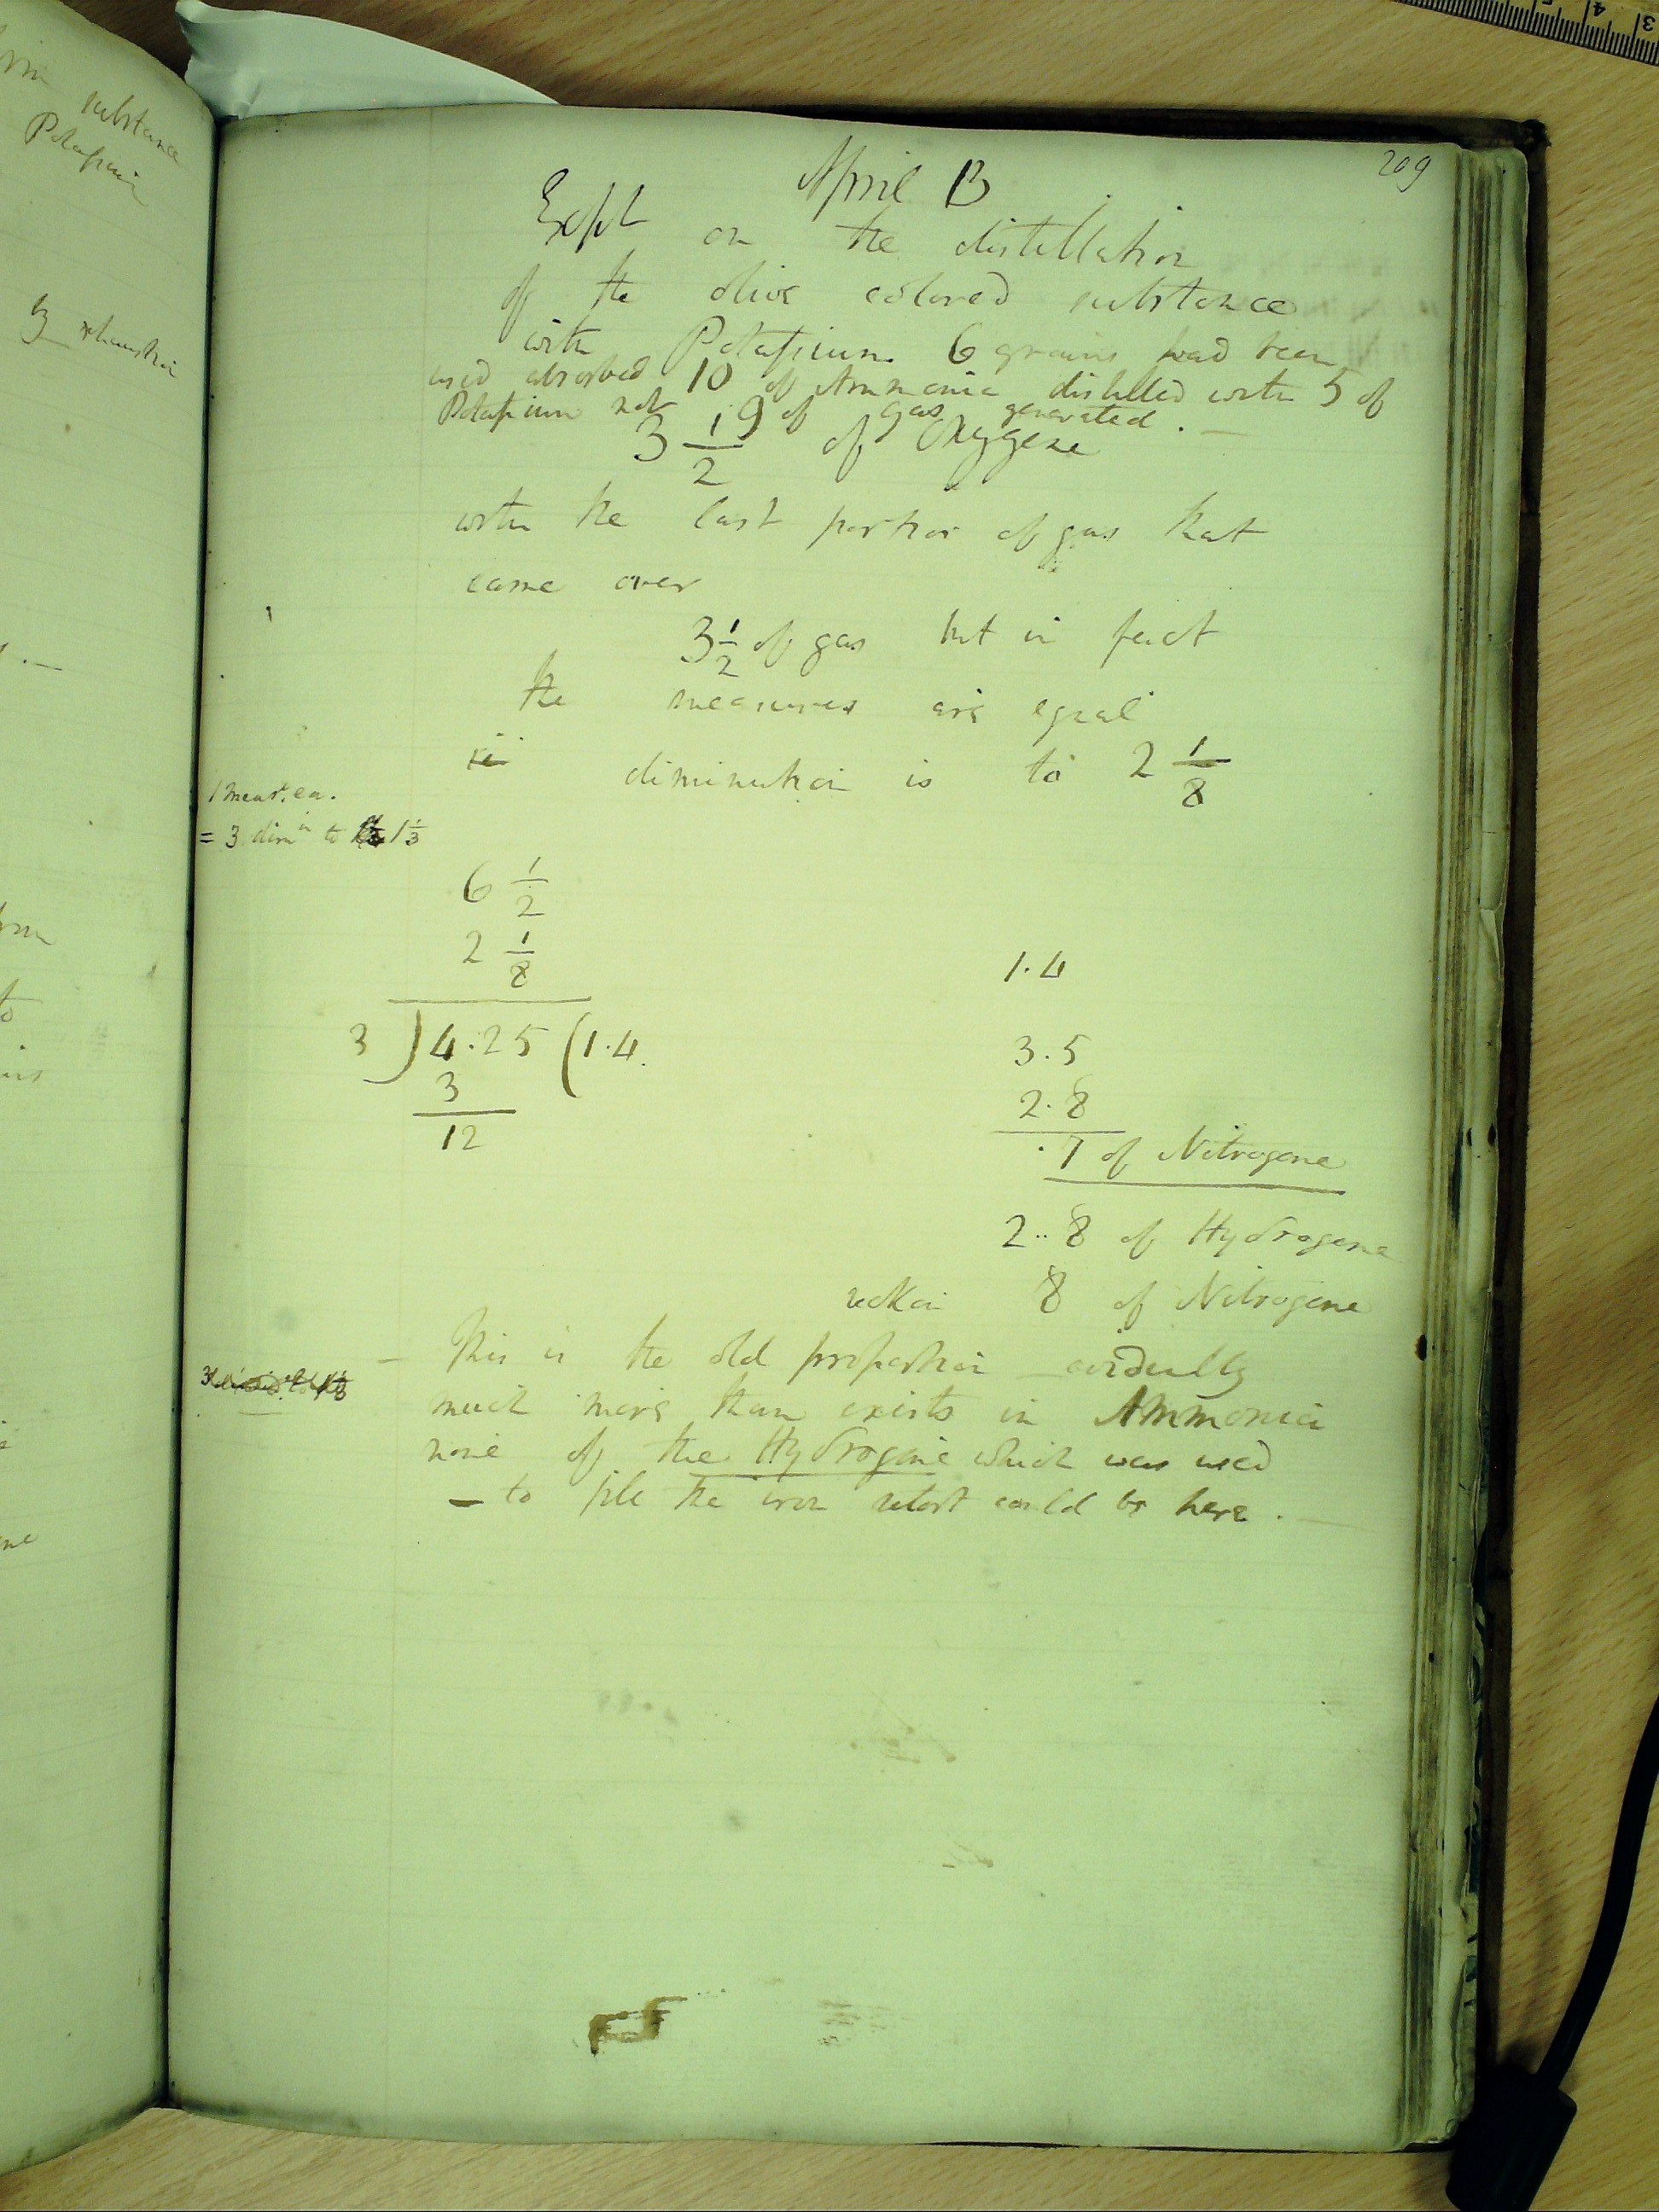 substance
Potassium
3
209
April 13
Expt on the distillation
of the olive colored substance
with Potassium. 6 grains had been
used absorbed 10 of Ammonia distilled with 5 of
Potassium not 9 of gas generated. —
3 1/2 of Oxygene
with the last portion of gas that
came over
3 1/2 of gas but in fact
the measures are equal
diminution is to 2 1/8
1 meas. ea.
= 3 dimn to 1 1/3
6 1/2
2 1/8
3 ) 4.25 ( 1.4.
3
12
1.4
3.5
2.8
.7 of Nitrogene
2..8 of Hydrogene
reckon 8 of Nitrogene
— This is the old proportion evidently
much more than exists in Ammonia
none of the Hydrogene which was used
— to fill the iron retort could be here. —